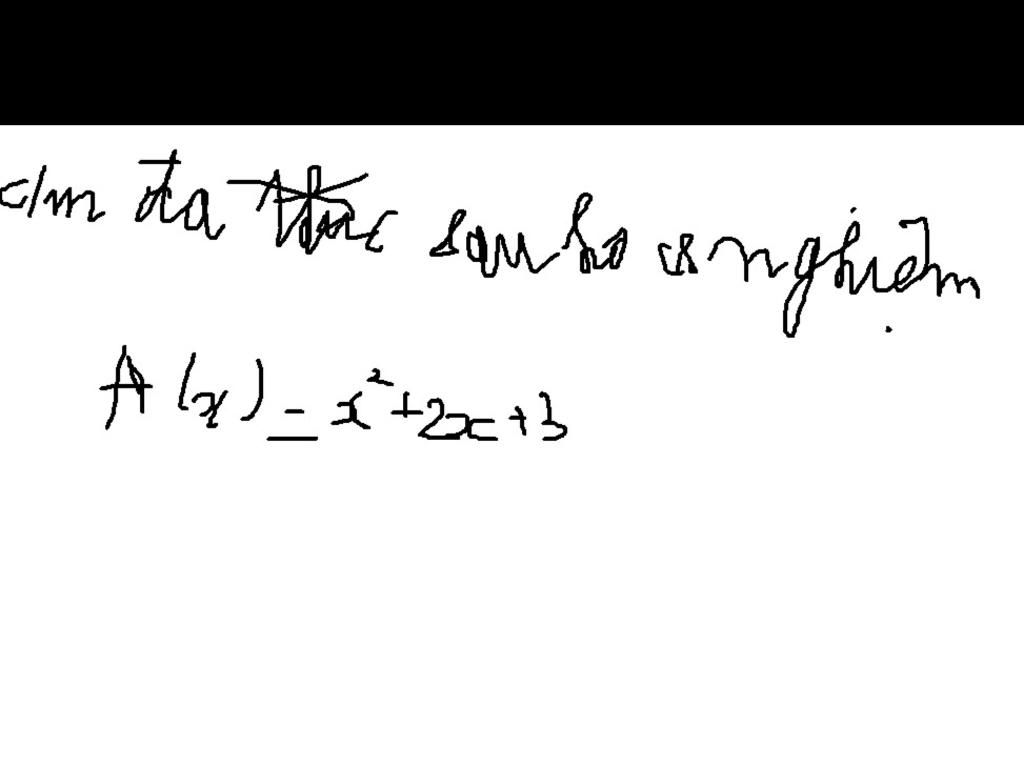 c/m đa thức sau ko có nghiệm
A(x) = x²+2x+3